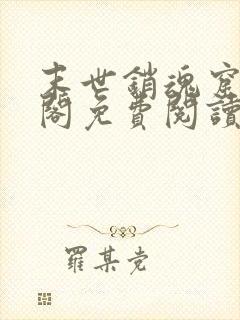 末世銷魂窟
閣免費閱讀
羅某党